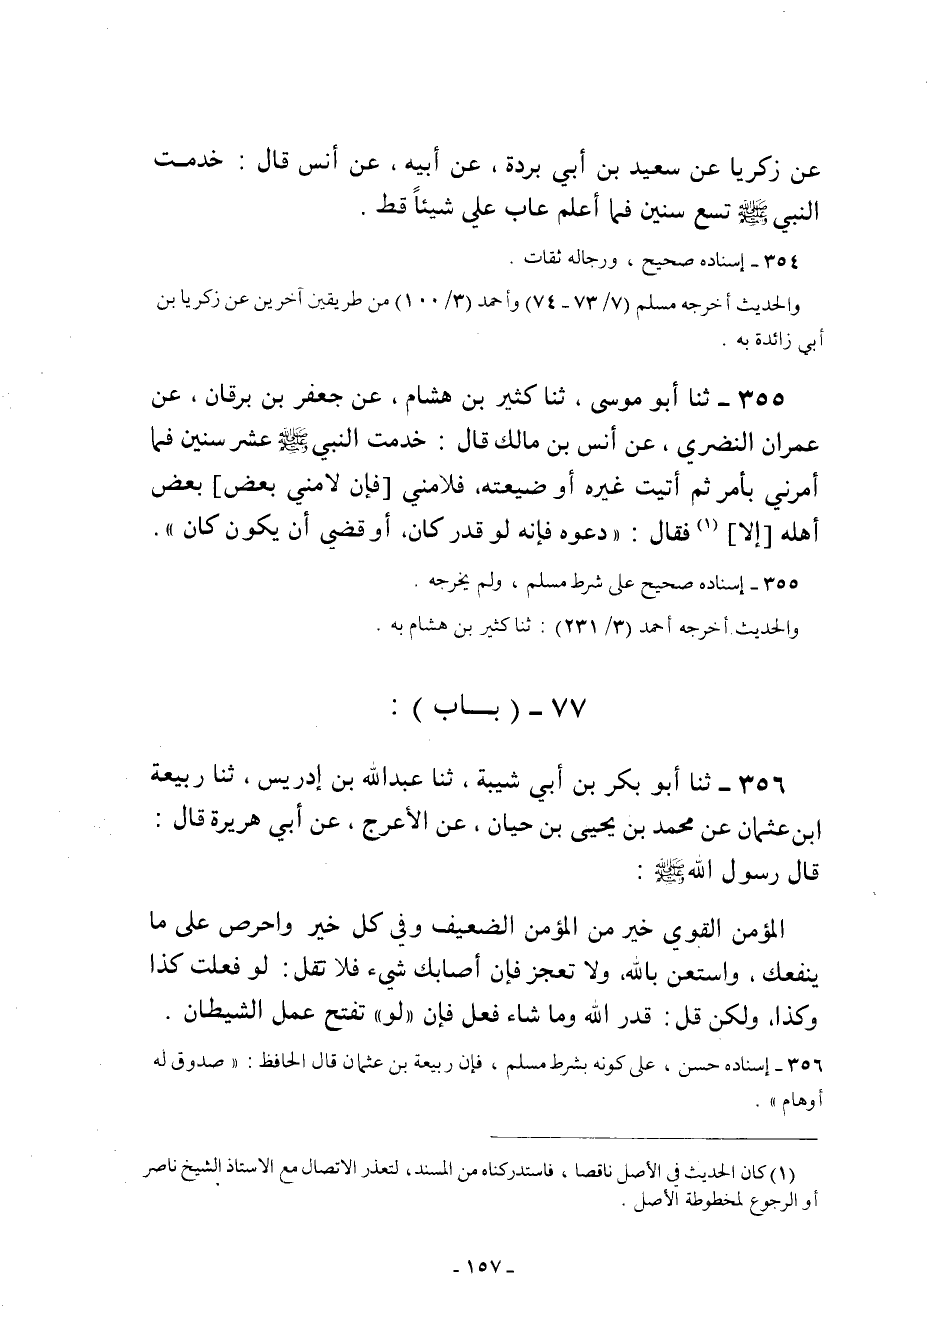 عن زكريا عن سعيد بن أبي بردة ، عن أبيه ، عن أنس قال : خدمت
النبي ﷺ تسع سنين فما أعلم عاب علي شيئاً قط .
٣٥٤ ـ إسناده صحيح ، ورجاله ثقات .
والحديث أخرجه مسلم (٧/ ٧٣ ـ ٧٤) وأحمد (٣/ ١٠٠) من طريقين آخرين عن زكريا بن
أبي زائدة به .
٣٥٥ ـ ثنا أبو موسى ، ثنا كثير بن هشام ، عن جعفر بن برقان ، عن
عمران النضري ، عن أنس بن مالك قال : خدمت النبي ﷺ عشر سنين فما
أمرني بأمر ثم أتيت غيره أو ضيعته، فلامني [فإن لامني بعض] بعض
أهله [إلا] (١) فقال : « دعوه فإنه لو قدر كان، أو قضي أن يكون كان » .
٣٥٥ ـ إسناده صحيح على شرط مسلم ، ولم يخرجه .
والحديث أخرجه أحمد (٣/ ٢٣١) : ثنا كثير بن هشام به .
٧٧ ـ ( بـــاب ) :
٣٥٦ ـ ثنا أبو بكر بن أبي شيبة ، ثنا عبدالله بن إدريس ، ثنا ربيعة
ابن عثمان عن محمد بن يحيى بن حيان ، عن الأعرج ، عن أبي هريرة قال :
قال رسول الله ﷺ :
المؤمن القوي خير من المؤمن الضعيف وفي كل خير واحرص على ما
ينفعك ، واستعن بالله، ولا تعجز فإن أصابك شيء فلا تقل : لو فعلت كذا
وكذا، ولكن قل : قدر الله وما شاء فعل فإن «لو» تفتح عمل الشيطان .
٣٥٦ ـ إسناده حسن ، على كونه بشرط مسلم ، فإن ربيعة بن عثمان قال الحافظ : « صدوق له
أوهام » .
(١) كان الحديث في الأصل ناقصا ، فاستدركناه من المسند، لتعذر الاتصال مع الاستاذ الشيخ ناصر
أو الرجوع لمخطوطة الأصل .
ـ ١٥٧ ـ